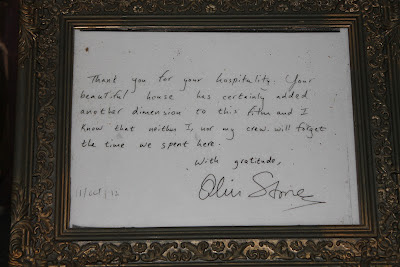 Thank you for your hospitality. Your
beautiful house has certainly added
another dimension to this film and I
know that neither I, nor my crew will forget
the time we spent here.
With gratitude,
Oliver Stone